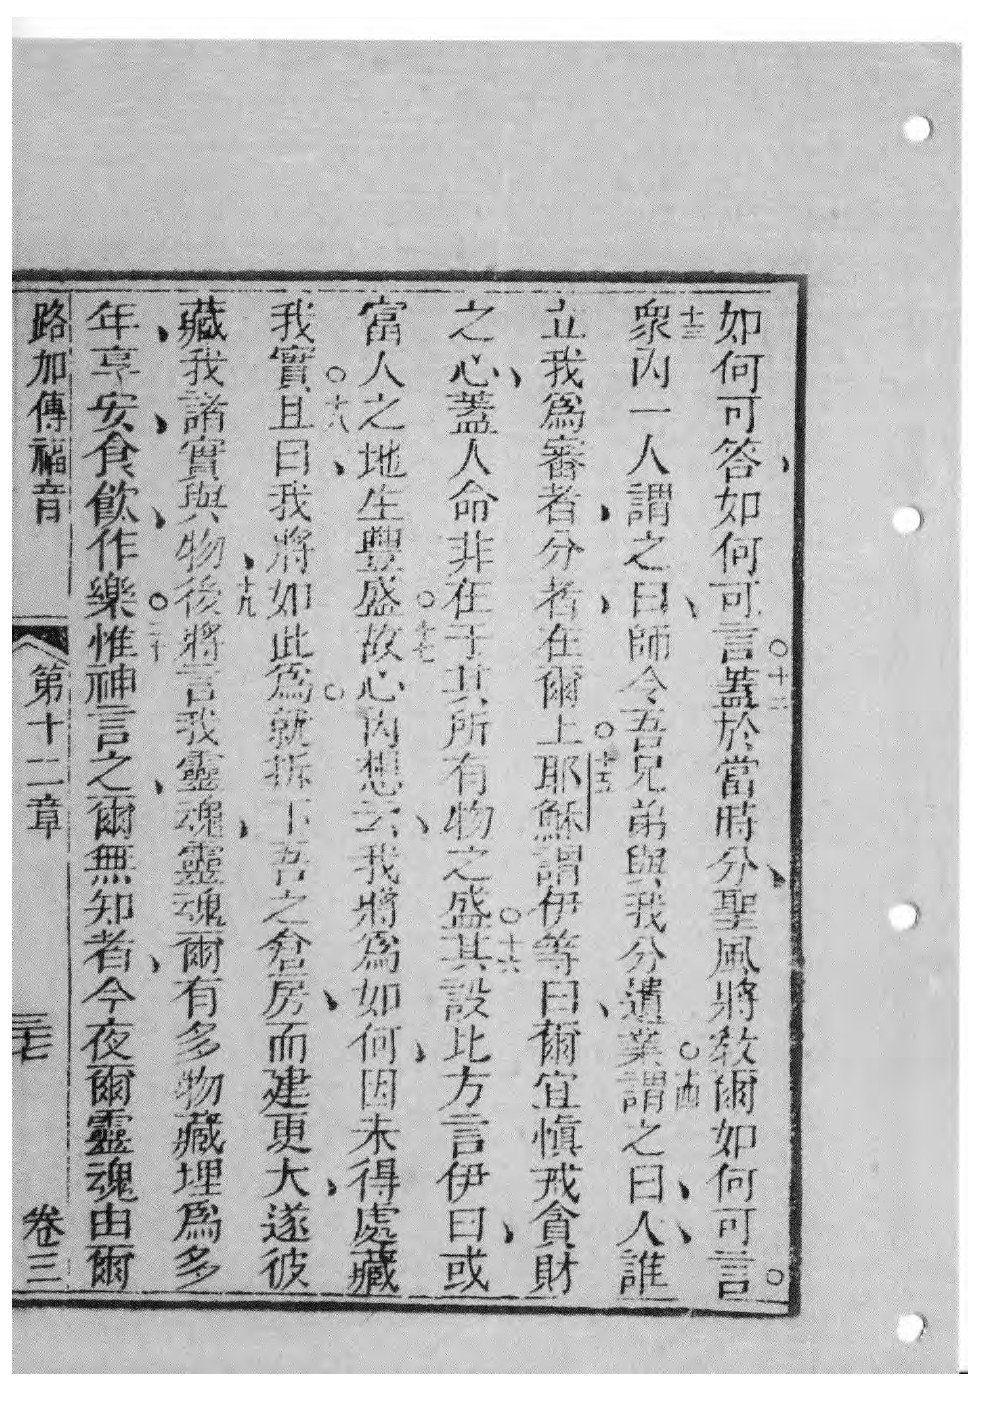 如何可答、如何可言。十二蓋於當時分、聖風將教爾如何可言。
十三衆內一人謂之曰、師令吾兄弟與我分遺業。十四謂之曰、人、誰
立我爲審者、分者、在爾上。十五耶穌謂伊等曰、爾宜愼戒貪財
之心、蓋人命非在于其所有物之盛。十六其設比方言伊曰、或
富人之地生豐盛。十七故心內想云、我將爲如何、因未得處藏
我實。十八且曰、我將如此爲。就拆下吾之倉房、而建更大、遂彼
藏我諸實與物、十九後將言我靈魂、靈魂爾有多物藏埋爲多
年、享安、食飲、作樂。二十惟神言之、爾無知者、今夜爾靈魂由爾
路加傳福音 第十二章 三七 卷三